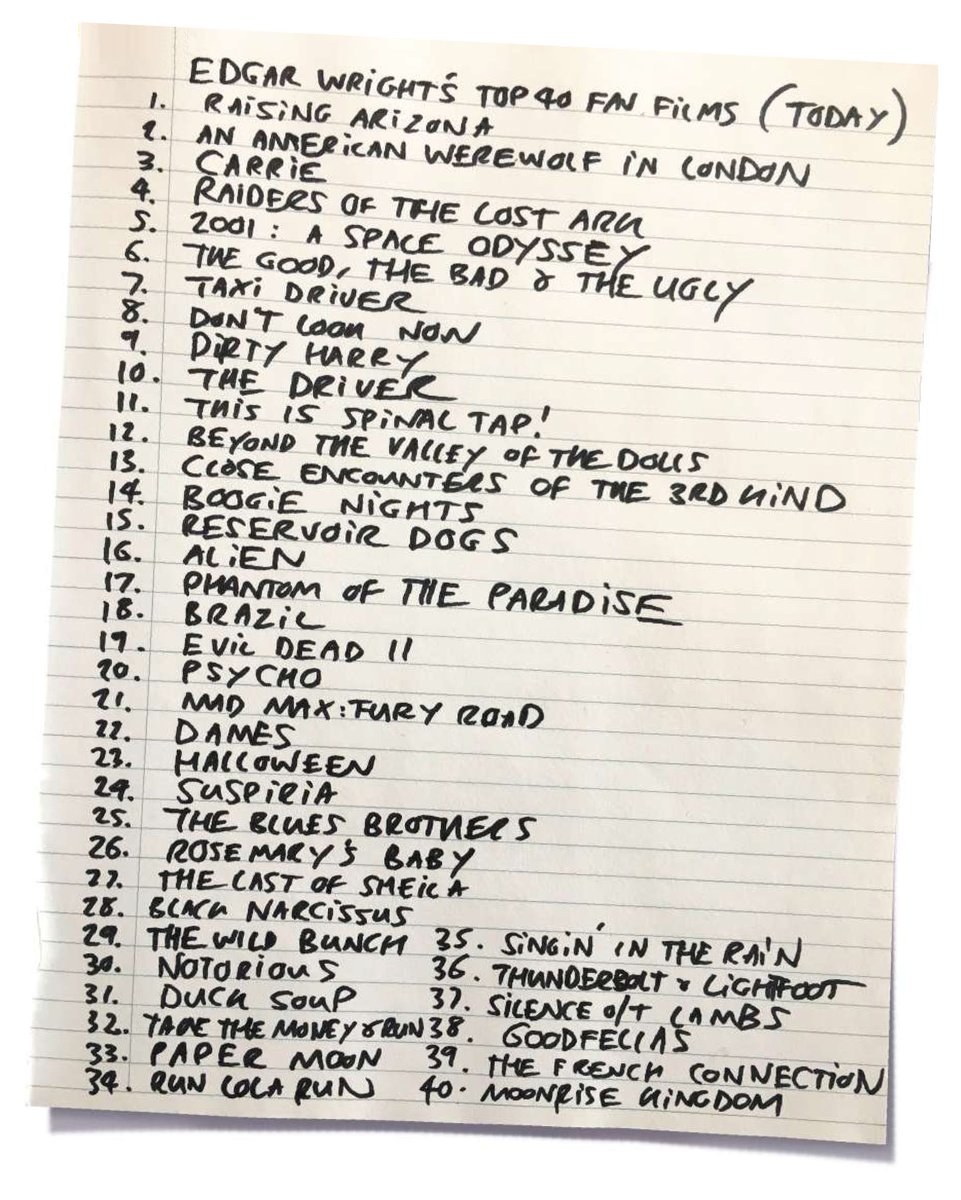 EDGAR WRIGHT'S TOP 40 FAV FILMS (TODAY)
1. RAISING ARIZONA
2. AN AMERICAN WEREWOLF IN LONDON
3. CARRIE
4. RAIDERS OF THE LOST ARK
5. 2001: A SPACE ODYSSEY
6. THE GOOD, THE BAD & THE UGLY
7. TAXI DRIVER
8. DON'T LOOK NOW
9. DIRTY HARRY
10. THE DRIVER
11. THIS IS SPINAL TAP!
12. BEYOND THE VALLEY OF THE DOLLS
13. CLOSE ENCOUNTERS OF THE 3RD KIND
14. BOOGIE NIGHTS
15. RESERVOIR DOGS
16. ALIEN
17. PHANTOM OF THE PARADISE
18. BRAZIL
19. EVIL DEAD II
20. PSYCHO
21. MAD MAX: FURY ROAD
22. DAMES
23. HALLOWEEN
24. SUSPIRIA
25. THE BLUES BROTHERS
26. ROSEMARY'S BABY
27. THE LAST OF SHEILA
28. BLACK NARCISSUS
29. THE WILD BUNCH
30. NOTORIOUS
31. DUCK SOUP
32. TAKE THE MONEY & RUN
33. PAPER MOON
34. RUN LOLA RUN
35. SINGIN' IN THE RAIN
36. THUNDERBOLT & LIGHTFOOT
37. SILENCE O/T LAMBS
38. GOODFELLAS
39. THE FRENCH CONNECTION
40. MOONRISE KINGDOM